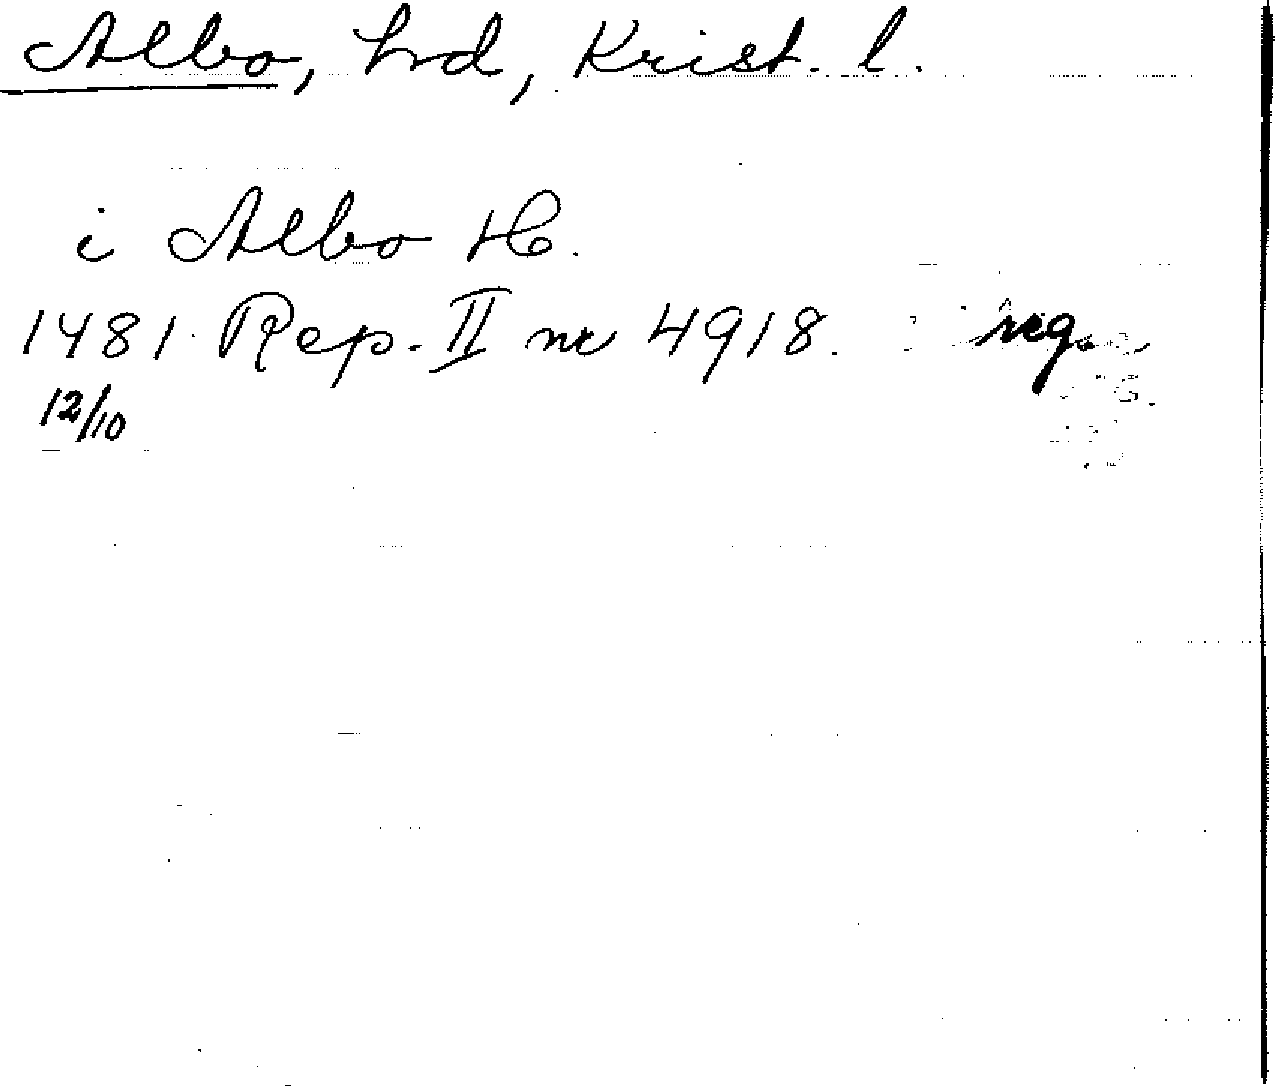 Albo, hd, Krist. l.
i Albo H.
1481 Rep. II nr 4918. reg.
12/10